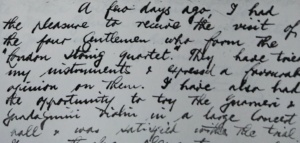 A few days ago, I had
the pleasure to receive the visit of
the four Gentlemen who form the
London String quartet. They have tried
my instruments & expressed a favourable
opinion on them. I have also had
the opportunity to try the Guarneri &
Guadagnini violin in a large concert
hall & was satisfied with the trial